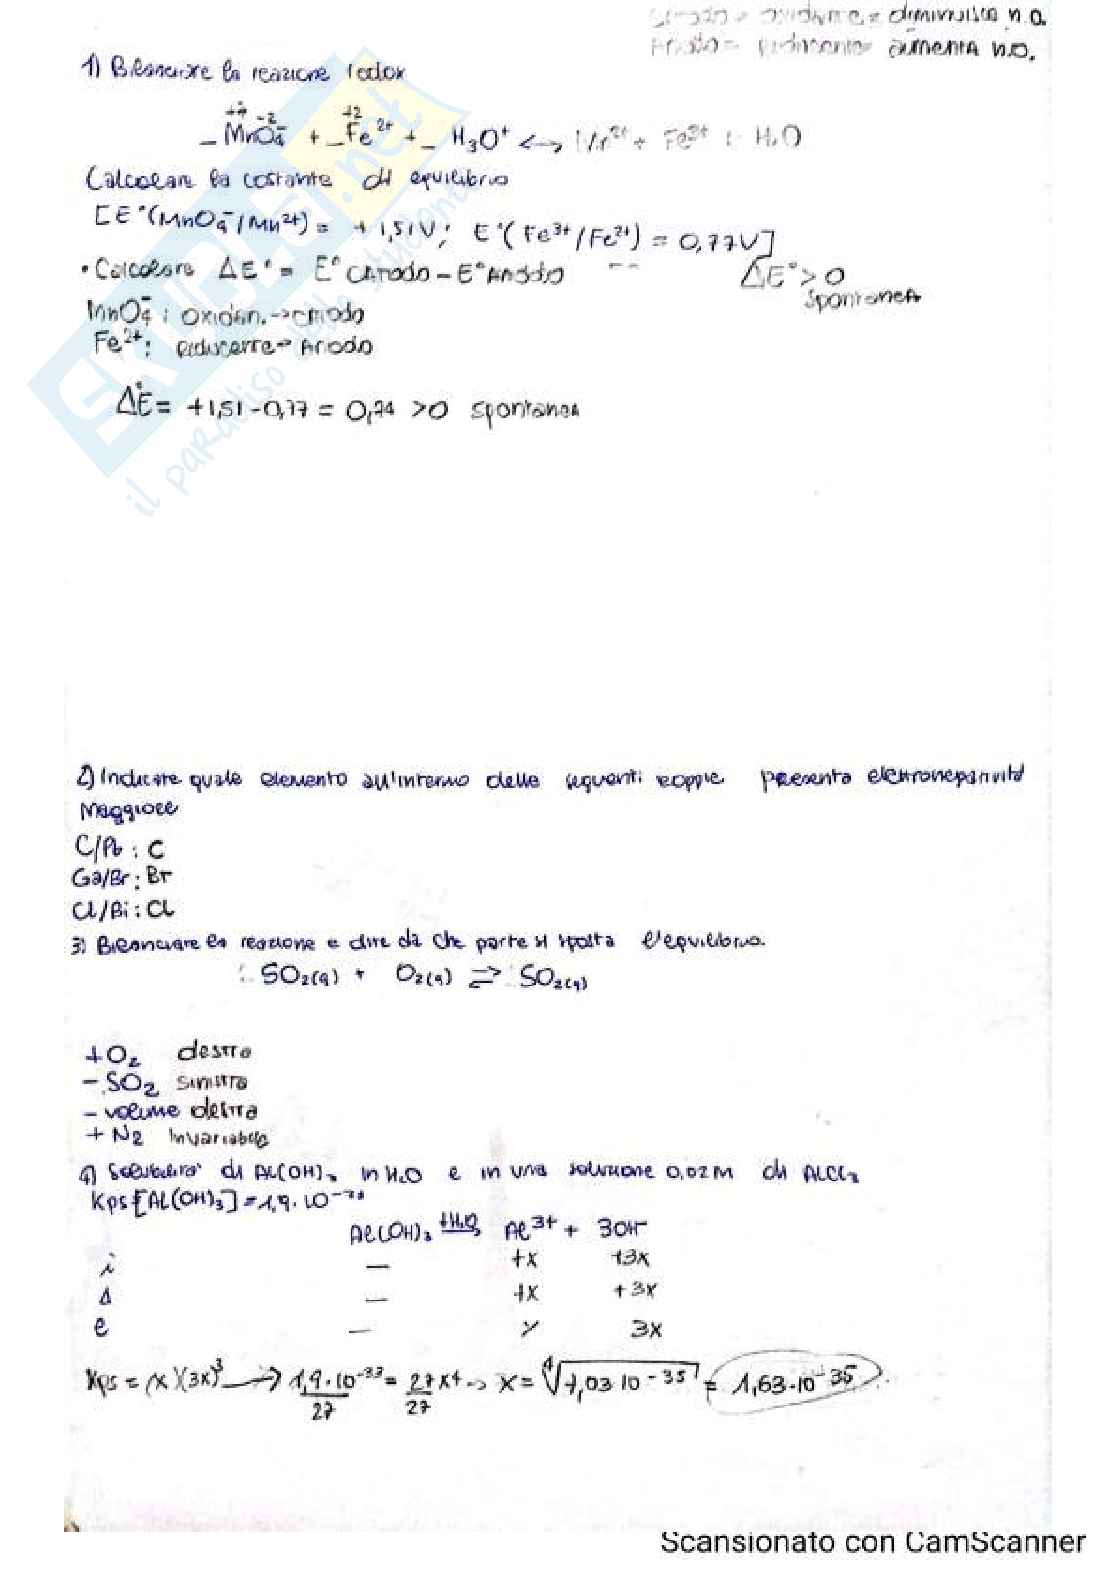 Catodo = oxidante = diminuisce n.o.
Anodo = riducente = aumenta n.o.
1) Bilanciare la reazione redox
+7 -2 +2
_ MnO₄⁻ + _ Fe²⁺ + _ H₃O⁺ <-> Mn²⁺ + Fe³⁺ + H₂O
Calcolare la costante di equilibrio
[E°(MnO₄⁻/Mn²⁺) = +1,51V; E°(Fe³⁺/Fe²⁺) = 0,77V]
• Calcolare ΔE° = E° Catodo - E° Anodo -- ΔE° > 0
spontanea
MnO₄⁻: oxidan. -> catodo
Fe²⁺: riducente -> Anodo
ΔE° = +1,51 - 0,77 = 0,74 >0 spontanea
SKUOLA.net
il paradiso dello studente
2) Indicare quale elemento all'interno delle seguenti coppie presenta elettronegatività
Maggiore
C/Pb : C
Ga/Br : Br
Cl/Bi : Cl
3) Bilanciare la reazione e dire da che parte si sposta l'equilibrio.
SO₂(g) + O₂(g) ⇌ SO₂(g)
+O₂ destra
- SO₂ sinistra
- volume destra
+ N₂ invariabile
4) Solubilità di Al(OH)₃ in H₂O e in una soluzione 0,02M di AlCl₃
Kps[Al(OH)₃] = 1,9·10⁻³³
Al(OH)₃ +H₂O Al³⁺ + 3OH⁻
i — +x +3x
Δ — +x +3x
e — x 3x
Kps = (x)(3x)³ —> 1,9·10⁻³³/27 = 27x⁴/27 -> x = ⁴√7,03 10⁻³⁵ = 1,63·10⁻³⁵
Scansionato con CamScanner